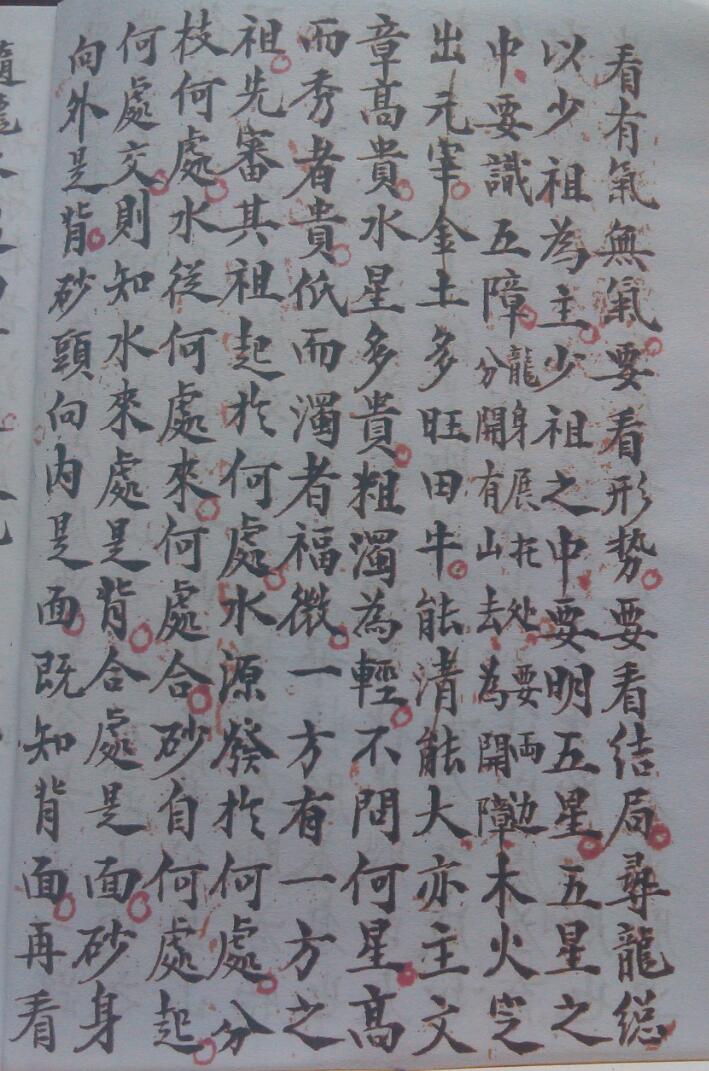 看有氣無氣要看形势要看结局尋龍總
以少祖為主少祖之中要明五星五星之
中要識五障龍身展托处要両边分開有山去為開障木火定
出元宰金土多旺田牛能清能大亦主文
章高貴水星多貴粗濁為輕不問何星高
而秀者貴低而濁者福微一方有一方之
祖先審其祖起於何處水源發於何處分
枝何處水從何處來何處合砂自何處起
何處交則知水來處是背合處是面砂身
向外是背砂頭向内是面既知背面再看